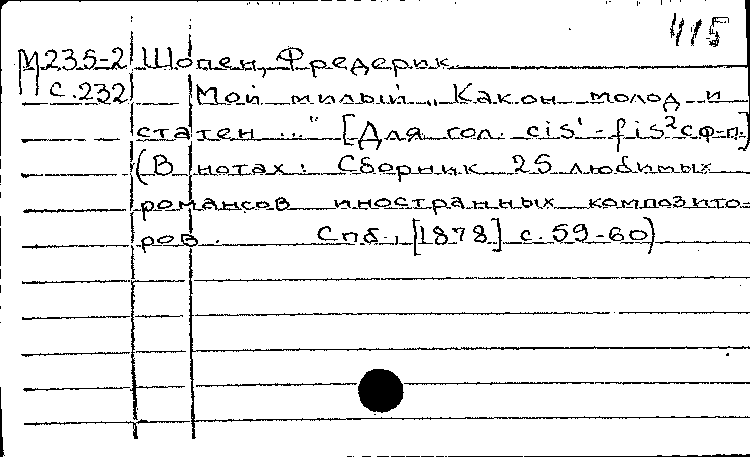 415
М235-2 Шопен, Фредерик
с.232 Мой милый „Как он молод и
статен ..." [Для гол. cis¹-fis² с ф-п.]
(В нотах: Сборник 25 любимых
романсов иностранных композито-
ров. Спб., [1878] с. 59-60)